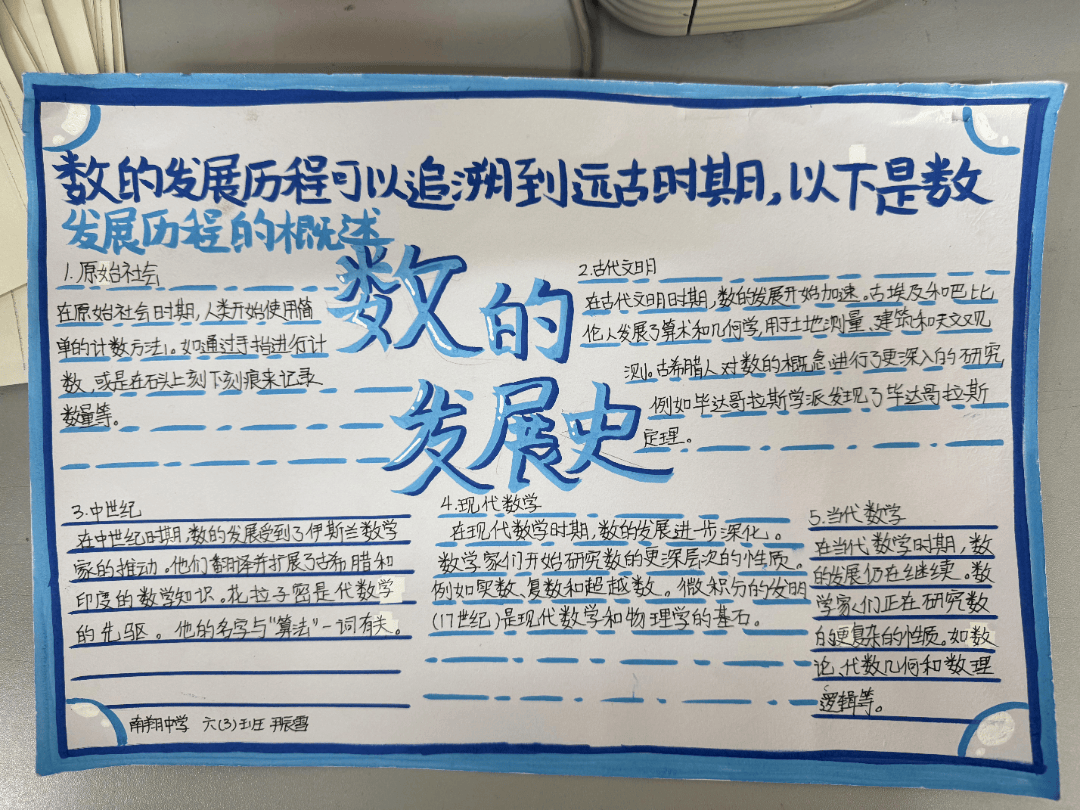 数的发展历程可以追溯到远古时期,以下是数
发展历程的概述
数的
发展史
1.原始社会
在原始社会时期,人类开始使用简
单的计数方法。如通过手指进行计
数,或是在石头上刻下刻痕来记录
数量等。
2.古代文明
在古代文明时期,数的发展开始加速。古埃及和巴比
伦人发展了算术和几何学,用于土地测量、建筑和天文观
测。古希腊人对数的概念进行了更深入的研究
例如毕达哥拉斯学派发现了毕达哥拉斯
定理。
3.中世纪
在中世纪时期,数的发展受到了伊斯兰数学
家的推动。他们翻译并扩展了古希腊和
印度的数学知识。花拉子密是代数学
的先驱。他的名字与"算法"一词有关。
4.现代数学
在现代数学时期,数的发展进一步深化。
数学家们开始研究数的更深层次的性质。
例如实数、复数和超越数。微积分的发明
(17世纪)是现代数学和物理学的基石。
5.当代数学
在当代数学时期,数
的发展仍在继续。数
学家们正在研究数
的更复杂的性质。如数
论、代数几何和数理
逻辑等。
南翔中学 六(3)班